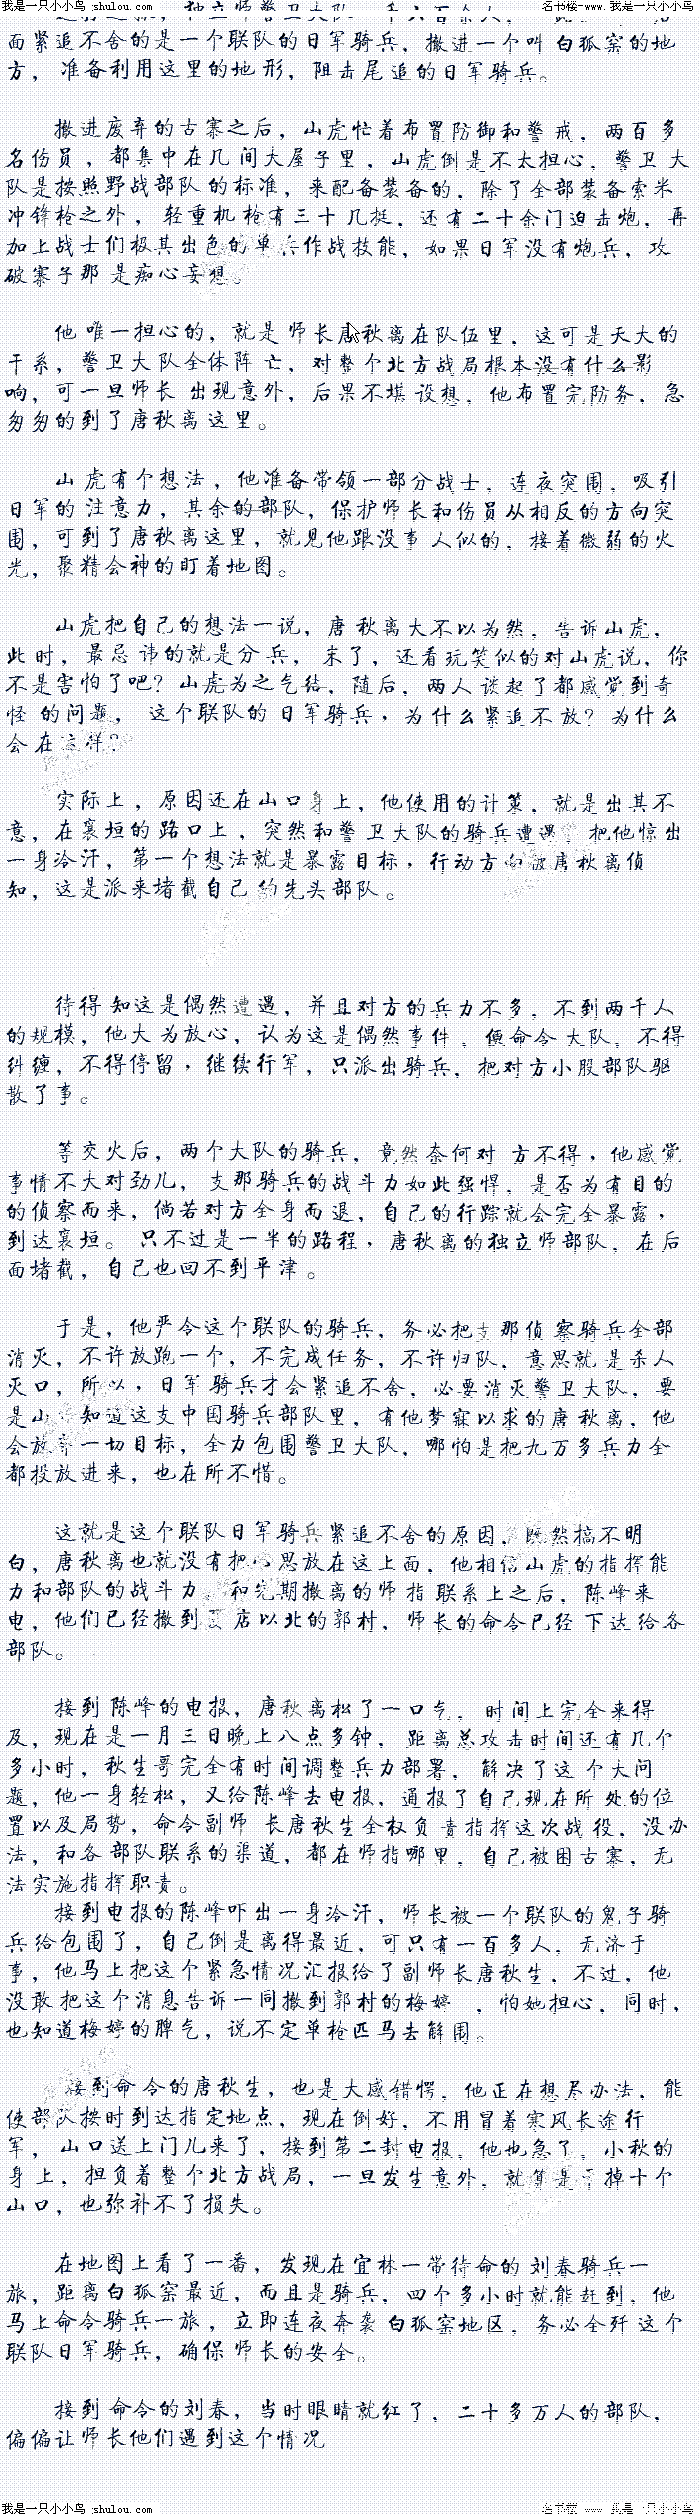 我是一只小小鸟 :shulou.com 名书楼-www.我是一只小小鸟
独立师警卫大队
面紧追不舍的是一个联队的日军骑兵，撤进一个叫白狐窑的地
方，准备利用这里的地形，阻击尾追的日军骑兵。
撤进废弃的古寨之后，山虎忙着布置防御和警戒，两百多
名伤员，都集中在几间大屋子里，山虎倒是不太担心，警卫大
队是按照野战部队的标准，来配备装备的，除了全部装备索米
冲锋枪之外，轻重机枪有三十几挺，还有二十余门迫击炮，再
加上战士们极其出色的单兵作战技能，如果日军没有炮兵，攻
破寨子那是痴心妄想。
他唯一担心的，就是师长唐秋离在队伍里，这可是天大的
干系，警卫大队全体阵亡，对整个北方战局根本没有什么影
响，可一旦师长出现意外，后果不堪设想，他布置完防务，急
匆匆的到了唐秋离这里。
山虎有个想法，他准备带领一部分战士，连夜突围，吸引
日军的注意力，其余的部队，保护师长和伤员从相反的方向突
围，可到了唐秋离这里，就见他跟没事人似的，接着微弱的火
光，聚精会神的盯着地图。
山虎把自己的想法一说，唐秋离大不以为然，告诉山虎，
此时，最忌讳的就是分兵，末了，还看玩笑似的对山虎说，你
不是害怕了吧？山虎为之气结，随后，两人谈起了都感觉到奇
怪的问题，这个联队的日军骑兵，为什么紧追不放？为什么
会在这样？
实际上，原因还在山口身上，他使用的计策，就是出其不
意，在襄垣的路口上，突然和警卫大队的骑兵遭遇，把他惊出
一身冷汗，第一个想法就是暴露目标，行动方向被唐秋离侦
知，这是派来堵截自己的先头部队。
待得知这是偶然遭遇，并且对方的兵力不多，不到两千人
的规模，他大为放心，认为这是偶然事件，便命令大队，不得
纠缠，不得停留，继续行军，只派出骑兵，把对方小股部队驱
散了事。
等交火后，两个大队的骑兵，竟然奈何对方不得，他感觉
事情不大对劲儿，支那骑兵的战斗力如此强悍，是否为有目的
的侦察而来，倘若对方全身而退，自己的行踪就会完全暴露，
到达襄垣。只不过是一半的路程，唐秋离的独立师部队，在后
面堵截，自己也回不到平津。
于是，他严令这个联队的骑兵，务必把支那侦察骑兵全部
消灭，不许放跑一个，不完成任务，不许归队，意思就是杀人
灭口，所以，日军骑兵才会紧追不舍，必要消灭警卫大队，要
是山口知道这支中国骑兵部队里，有他梦寐以求的唐秋离，他
会放弃一切目标，全力包围警卫大队，哪怕是把九万多兵力全
都投放进来，也在所不惜。
这就是这个联队日军骑兵紧追不舍的原因，既然搞不明
白，唐秋离也就没有把心思放在这上面，他相信山虎的指挥能
力和部队的战斗力，和先期撤离的师指联系上之后，陈峰来
电，他们已经撤到店以北的郭村，师长的命令已经下达给各
部队。
接到陈峰的电报，唐秋离松了一口气，时间上完全来得
及，现在是一月三日晚上八点多钟，距离总攻击时间还有几个
多小时，秋生哥完全有时间调整兵力部署，解决了这个大问
题，他一身轻松，又给陈峰去电报，通报了自己现在所处的位
置以及局势，命令副师长唐秋生全权负责指挥这次战役，没办
法，和各部队联系的渠道，都在师指哪里，自己被困古寨，无
法实施指挥职责。
接到电报的陈峰吓出一身冷汗，师长被一个联队的鬼子骑
兵给包围了，自己倒是离得最近，可只有一百多人，无济于
事，他马上把这个紧急情况汇报给了副师长唐秋生，不过，他
没敢把这个消息告诉一同撤到郭村的梅婷，怕她担心，同时，
也知道梅婷的脾气，说不定单枪匹马去解围。
接到命令的唐秋生，也是大感错愕，他正在想尽办法，能
使部队按时到达指定地点，现在倒好，不用冒着寒风长途行
军，山口送上门儿来了，接到第二封电报，他也急了，小秋的
身上，担负着整个北方战局，一旦发生意外，就算是干掉十个
山口，也弥补不了损失。
在地图上看了一番，发现在宜林一带待命的刘春骑兵一
旅，距离白狐窑最近，而且是骑兵，四个多小时就能赶到，他
马上命令骑兵一旅，立即连夜奔袭白狐窑地区，务必全歼这个
联队日军骑兵，确保师长的安全。
接到命令的刘春，当时眼睛就红了，二十多万人的部队，
偏偏让师长他们遇到这个情况
我是一只小小鸟 :shulou.com 名书楼 --- 我是一只小小鸟